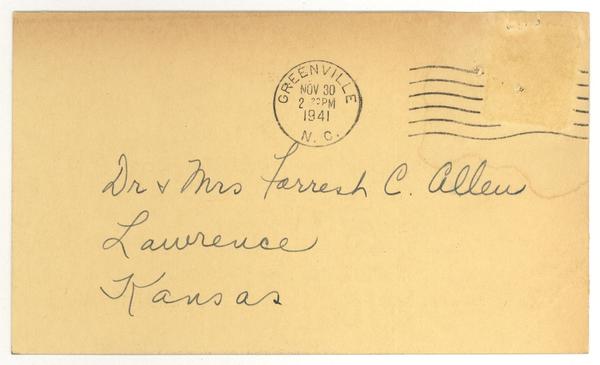 GREENVILLE
NOV 30
PM
1941
N. C.
Dr & Mrs Forrest C. Allen
Lawrence
Kansas